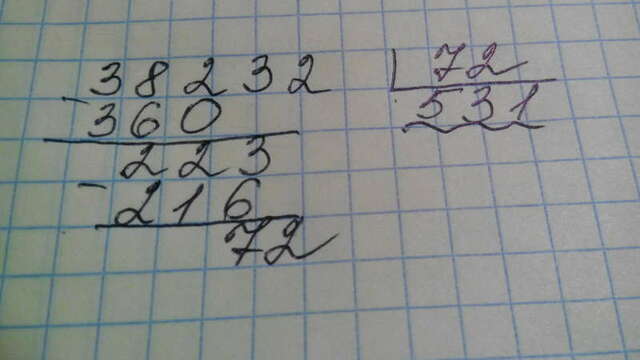 38232 72
- 360 531
223
- 216
72